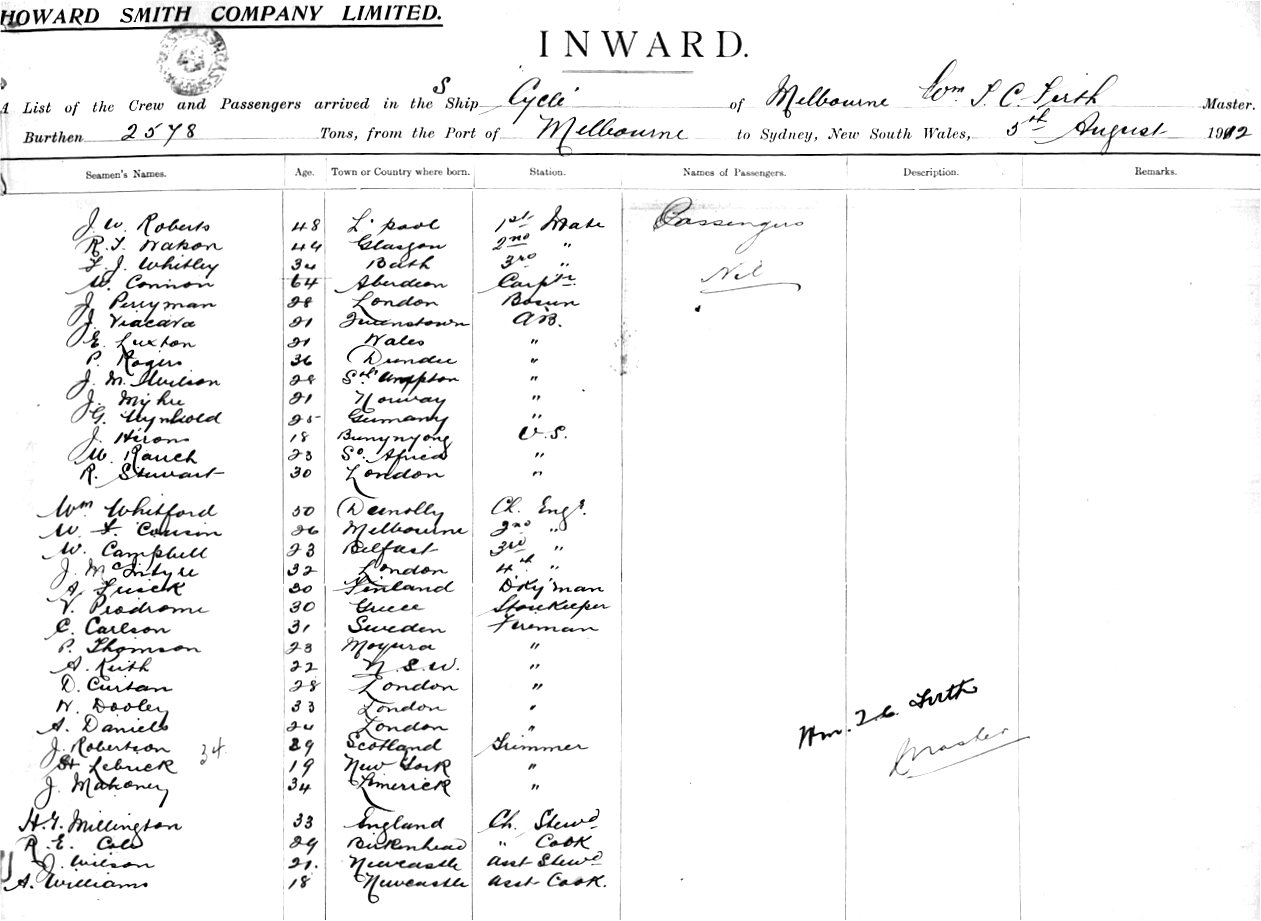 HOWARD SMITH COMPANY LIMITED.
INWARD.
A List of the Crew and Passengers arrived in the S Ship Cycle of Melbourne Wm T. C. Firth Master.
Burthen 2578 Tons, from the Port of Melbourne to Sydney, New South Wales, 5th August 1912
Seamen's Names. Age. Town or Country where born. Station. Names of Passengers. Description. Remarks.
J. W. Roberts 48 L'pool 1st Mate Passengers
R. T. Watson 44 Glasgow 2nd "
F. J. Whitley 34 Bath 3rd " Nil
W. Connon 64 Aberdeen Carptr
J. Perryman 28 London Bosun
J. Viacava 21 Queenstown AB.
E. Luxton 21 Wales "
P. Rogers 36 Dundee "
J. M. Wilson 28 Sth'ampton "
J. 21 Norway "
G. 25 Germany "
J. Hirons 18 Buninyong O.S.
W. Rauch 23 So. Africa "
R. Stewart 30 London "
Wm Whitford 50 Dunolly Ch. Engr.
W. F. Cousin 26 Melbourne 2nd "
W. Campbell 23 Belfast 3rd "
J. McIntyre 32 London 4th "
A. 30 Finland D'Ky'man
V. Prodrome 30 Greece Storekeeper
C. Carlson 31 Sweden Fireman
P. Thomson 23 Moyura "
A. Keith 22 N.S.W. "
D. Curtan 28 London "
W. Dooley 33 London "
A. Daniels 24 London "
J. Robertson 34 29 Scotland Trimmer
Lebrick 19 New York "
J. Mahoney 34 Limerick "
Wm. T. C. Firth
Master
H. T. Millington 33 England Ch. Stewd
R. E. Cole 29 Birkenhead " Cook
J. Wilson 21. Newcastle Asst Stewd
A. Williams 18 Newcastle Asst Cook.